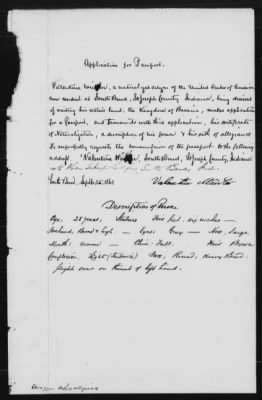 Application for Passport.
Valentine, a naturalized citizen of the United States of America
now resident at South Bend, St Joseph County Indiana, being desirous
of visiting his native land, the Kingdom of Bavaria, makes application
for a Passport, and transmits with this application, his certificate
of Naturalization, a description of his person & his oath of allegiance
He respectfully requests the transmission of the passport to the following
address, "Valentine, South Bend, St Joseph County, Indiana
South Bend, Sept 1861
Valentin
Description of Person
Age, 28 years, Stature five feet six inches —
Forehead, Broad & high — Eyes: Gray — Nose, Large
Mouth: — Chin: Full. Hair Brown
Complexion: Light Face, Round,
slight scar on thumb of left hand.